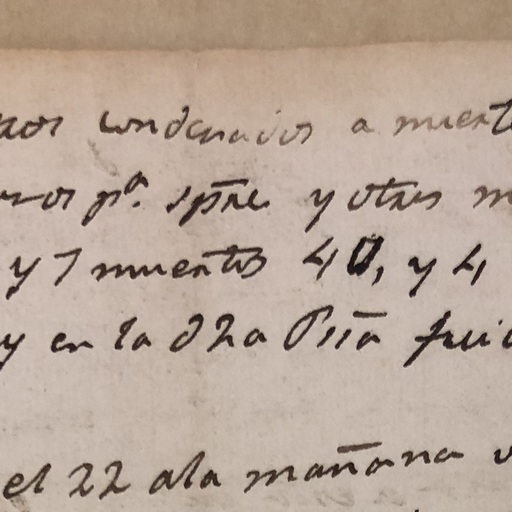 condenados a muerte
pª. spre y otros
y 7 muertos 40, y 4
y en la dha Prra fui
el 22 ala mañana